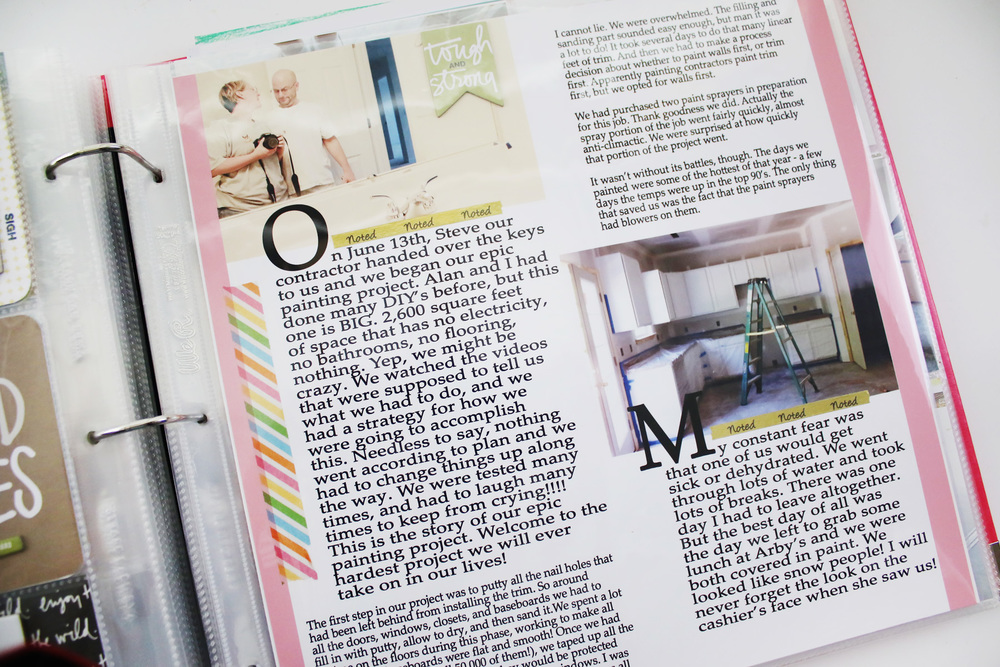 SIGH
D
ES
enjoy t
the wild.
tough
AND
strong
Noted Noted Noted
On June 13th, Steve our
contractor handed over the keys
to us and we began our epic
painting project. Alan and I had
done many DIY's before, but this
one is BIG. 2,600 square feet
of space that has no electricity,
no bathrooms, no flooring,
nothing. Yep, we might be
crazy. We watched the videos
that were supposed to tell us
what we had to do, and we
had a strategy for how we
were going to accomplish
this. Needless to say, nothing
went according to plan and we
had to change things up along
the way. We were tested many
times, and had to laugh many
times to keep from crying!!!!
This is the story of our epic
painting project. Welcome to the
hardest project we will ever
take on in our lives!
The first step in our project was to putty all the nail holes that
had been left behind from installing the trim. So around
all the doors, windows, closets, and baseboards we had to
fill in with putty, allow to dry, and then sand it. We spent a lot
on the floors during this phase, working to make all
boards were flat and smooth! Once we had
50,000 of them!), we taped up all the
would be protected
windows. I was
I cannot lie. We were overwhelmed. The filling and
sanding part sounded easy enough, but man it was
a lot to do! It took several days to do that many linear
feet of trim. And then we had to make a process
decision about whether to paint walls first, or trim
first. Apparently painting contractors paint trim
first, but we opted for walls first.
We had purchased two paint sprayers in preparation
for this job. Thank goodness we did. Actually the
spray portion of the job went fairly quickly, almost
anti-climactic. We were surprised at how quickly
that portion of the project went.
It wasn't without its battles, though. The days we
painted were some of the hottest of that year - a few
days the temps were up in the top 90's. The only thing
that saved us was the fact that the paint sprayers
had blowers on them.
Noted Noted Noted
My constant fear was
that one of us would get
sick or dehydrated. We went
through lots of water and took
lots of breaks. There was one
day I had to leave altogether.
But the best day of all was
the day we left to grab some
lunch at Arby's and we were
both covered in paint. We
looked like snow people! I will
never forget the look on the
cashier's face when she saw us!